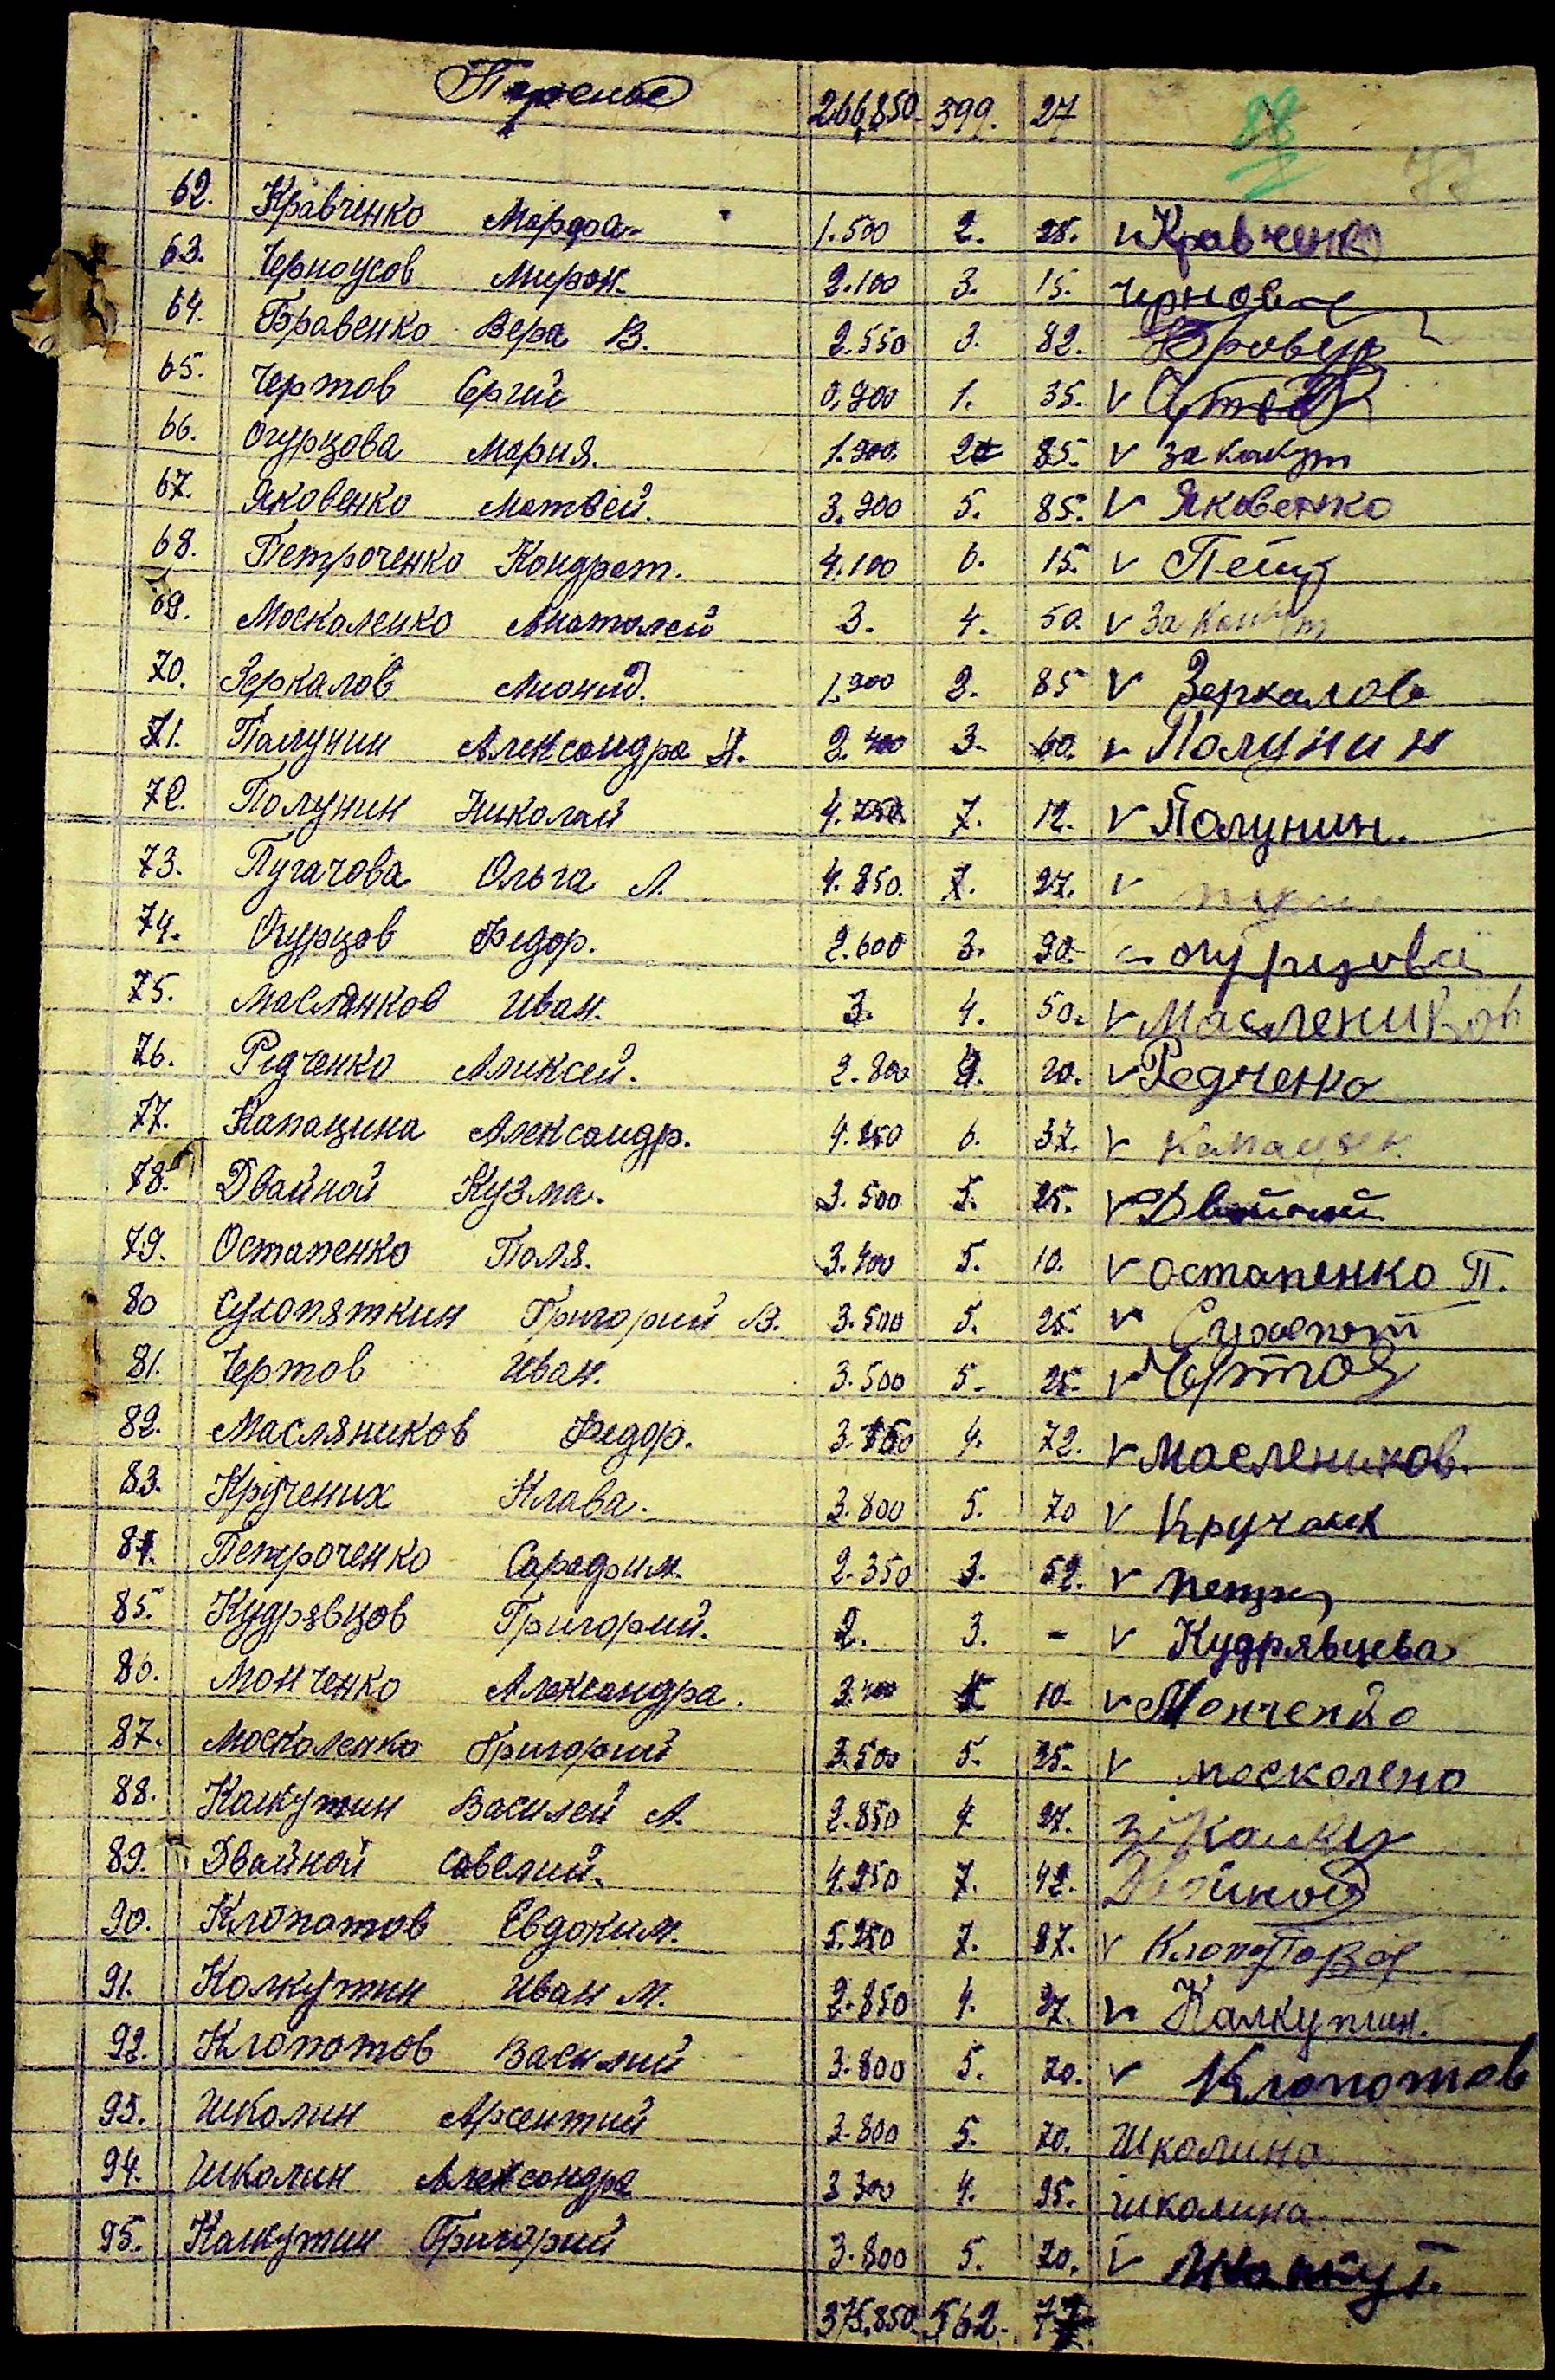 Перенос 266,850. 399. 27 88
62. Кравченко Марфа 1.500 2. 25. v Кравченко
63. Черноусов Мирон. 2.100 3. 15.
64. Бравенко Вера В. 2.550 3. 82.
65. Чертов Сергий 0,900 1. 35. v
66. Огурцова Мария. 1.900. 2 85. v за Калкут
67. Яковенко Матвей. 3.900 5. 85. v Яковенко
68. Петроченко Кондрат. 4.100 6. 15. v
69. Москаленко Анатолей 3. 4. 50. v За
70. Зеркалов Леонид. 1.900 2. 85 v Зеркалов
71. Палунин Александра Н. 2.400 3. 60. v Полунин
72. Полунин Николай 4.750. 7. 12. v Палунин.
73. Пугачова Ольга Л. 4.850. 7. 27. v
74. Огурцов Федор. 2.600 3. 90. огурцова
75. Маслянков Иван. 3. 4. 50. v Маслеников
76. Редченко Алексей. 2.800 4. 20. v Редченко
77. Капацина Александр. 4.250 6. 37. v
78. Двайной Кузма. 3.500 5. 25. v Двайной
79. Остапенко Поля. 3.400 5. 10. v остапенко П.
80 Сухопяткин Григорий В. 3.500 5. 25. v Сухопят
81. Чертов Иван. 3.500 5. 25. v Чертов
82. Масляников Федор. 3.150 4. 72. v маслеников.
83. Кручених Клава. 3.800 5. 70 v
84. Петроченко Сарафим. 2.350 3. 52. v
85. Кудрявцов Григорий. 2. 3. - v Кудрявцева
86. Монченко Александра. 3.400 5 10. v Менченко
87. Москаленко Григорий 3.500 5. 25. v москалено
88. Калкутин Василей А. 2.850 4 27. з Калку
89. Двайной Савелий. 4.950 7. 42. Двойной
90. Клопотов Евдоким. 5.250 7. 87. v Клопотова
91. Калкутин Иван М. 2.850 4. 27. v Калкутин.
92. Клопотов Василий 3.800 5. 70. v Клопотов
93. Школин Арсентий 3.800 5. 70. Школина
94. Школин Александра 3 300 4. 95. школина
95. Калкутин Григорий 3.800 5. 70. v
375.850. 562. 77.